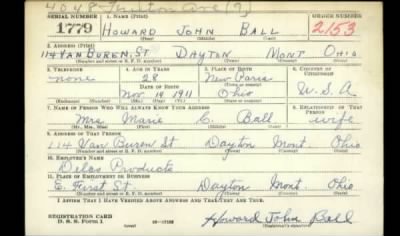 4048 Fruiton Ave (?)
SERIAL NUMBER 1. NAME (Print) ORDER NUMBER
1779 HOWARD JOHN BALL 2153
(First) (Middle) (Last)
2. ADDRESS (Print)
114 VAN BUREN ST DAYTON MONT OHIO
(Number and street or R. F. D. number) (Town) (County) (State)
3. TELEPHONE 4. AGE IN YEARS 5. PLACE OF BIRTH 6. COUNTRY OF CITIZENSHIP
none 28 New Paris
DATE OF BIRTH
Nov 14 1911 Ohio U.S.A
(Mo.) (Day) (Yr.) (State or country)
7. NAME OF PERSON WHO WILL ALWAYS KNOW YOUR ADDRESS 8. RELATIONSHIP OF THAT PERSON
Mrs. Marie C. Ball wife
(Mr., Mrs., Miss) (First) (Middle) (Last)
9. ADDRESS OF THAT PERSON
114 Van Buren St Dayton Mont. Ohio
(Number and street or R. F. D. number) (Town) (County) (State)
10. EMPLOYER'S NAME
Delco Products
11. PLACE OF EMPLOYMENT OR BUSINESS
E. First St Dayton Mont. Ohio
(Number and street or R. F. D. number) (Town) (County) (State)
I AFFIRM THAT I HAVE VERIFIED ABOVE ANSWERS AND THAT THEY ARE TRUE.
REGISTRATION CARD
D. S. S. Form 1 Howard John Ball